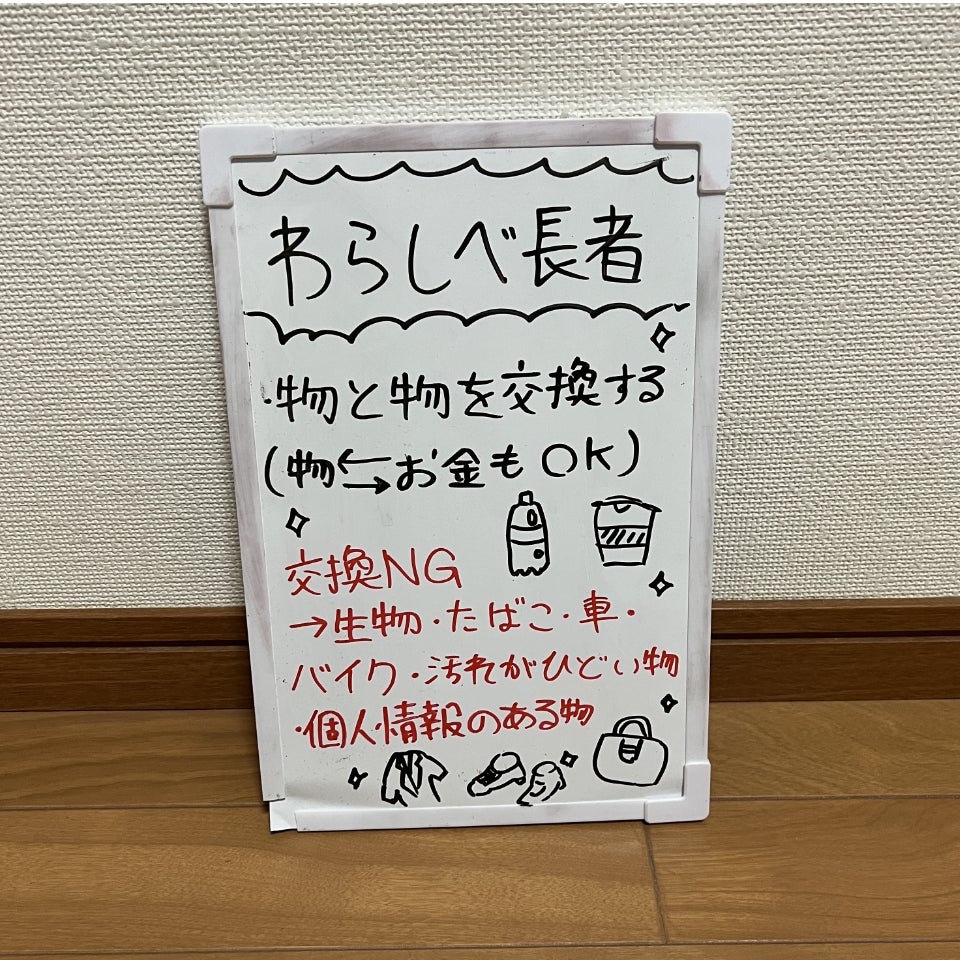 わらしべ長者
・物と物を交換する
(物⇆お金も OK)
交換NG
→生物・たばこ・車・
バイク・汚れがひどい物
・個人情報のある物